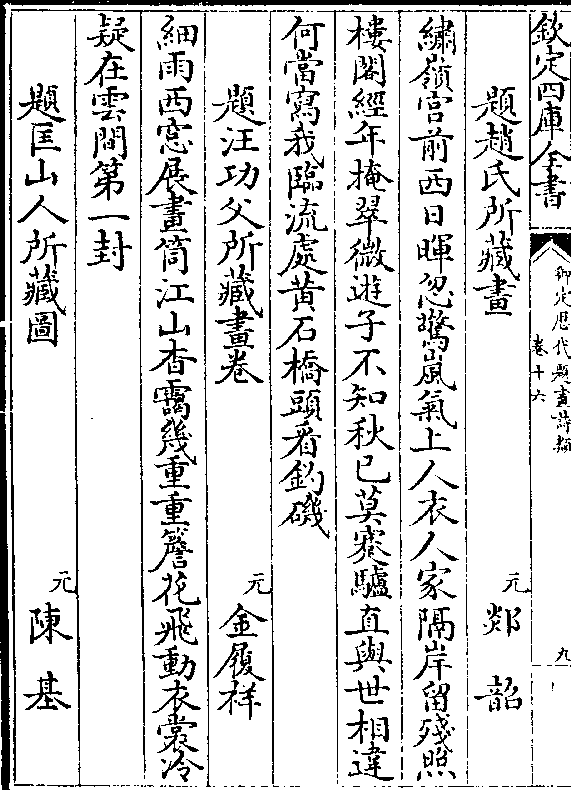 欽定四庫全書
御定歴代題畫詩類
卷十六
九
題趙氏所藏畫 元 郯韶
繡嶺宫前西日暉忽驚嵐氣上人衣人家隔岸留殘照
樓閣經年掩翠微遊子不知秋已莫蹇驢直與世相違
何當寫我臨流處黄石橋頭看釣磯
題汪功父所藏畫卷 元 金履祥
細雨西窓展畫筒江山杳靄幾重重簷花飛動衣裳冷
疑在雲間第一封
題匡山人所藏圖 元 陳基